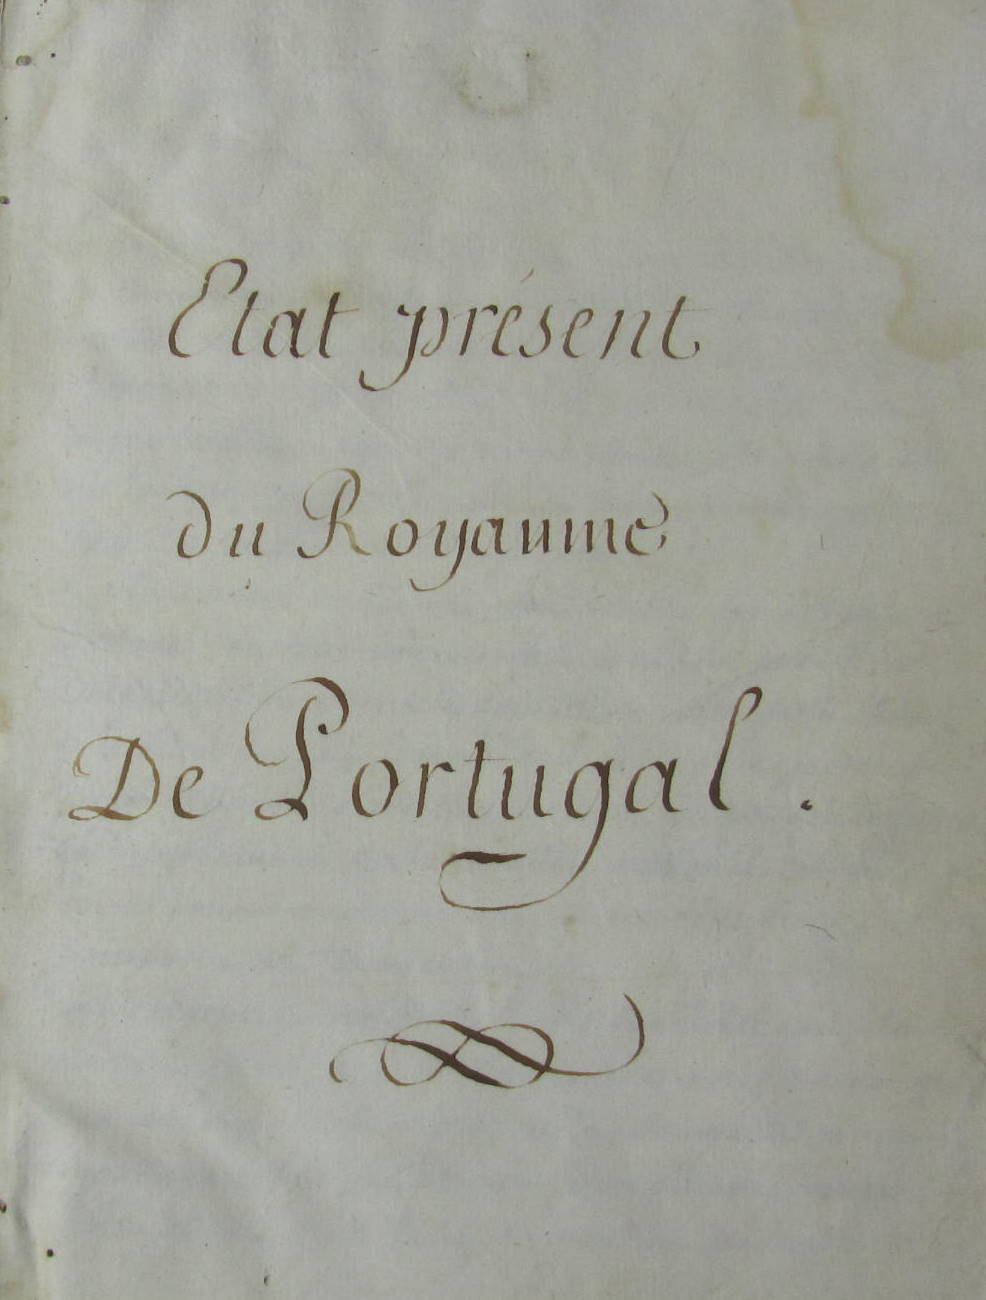 Etat présent
du Royaume
De Portugal.